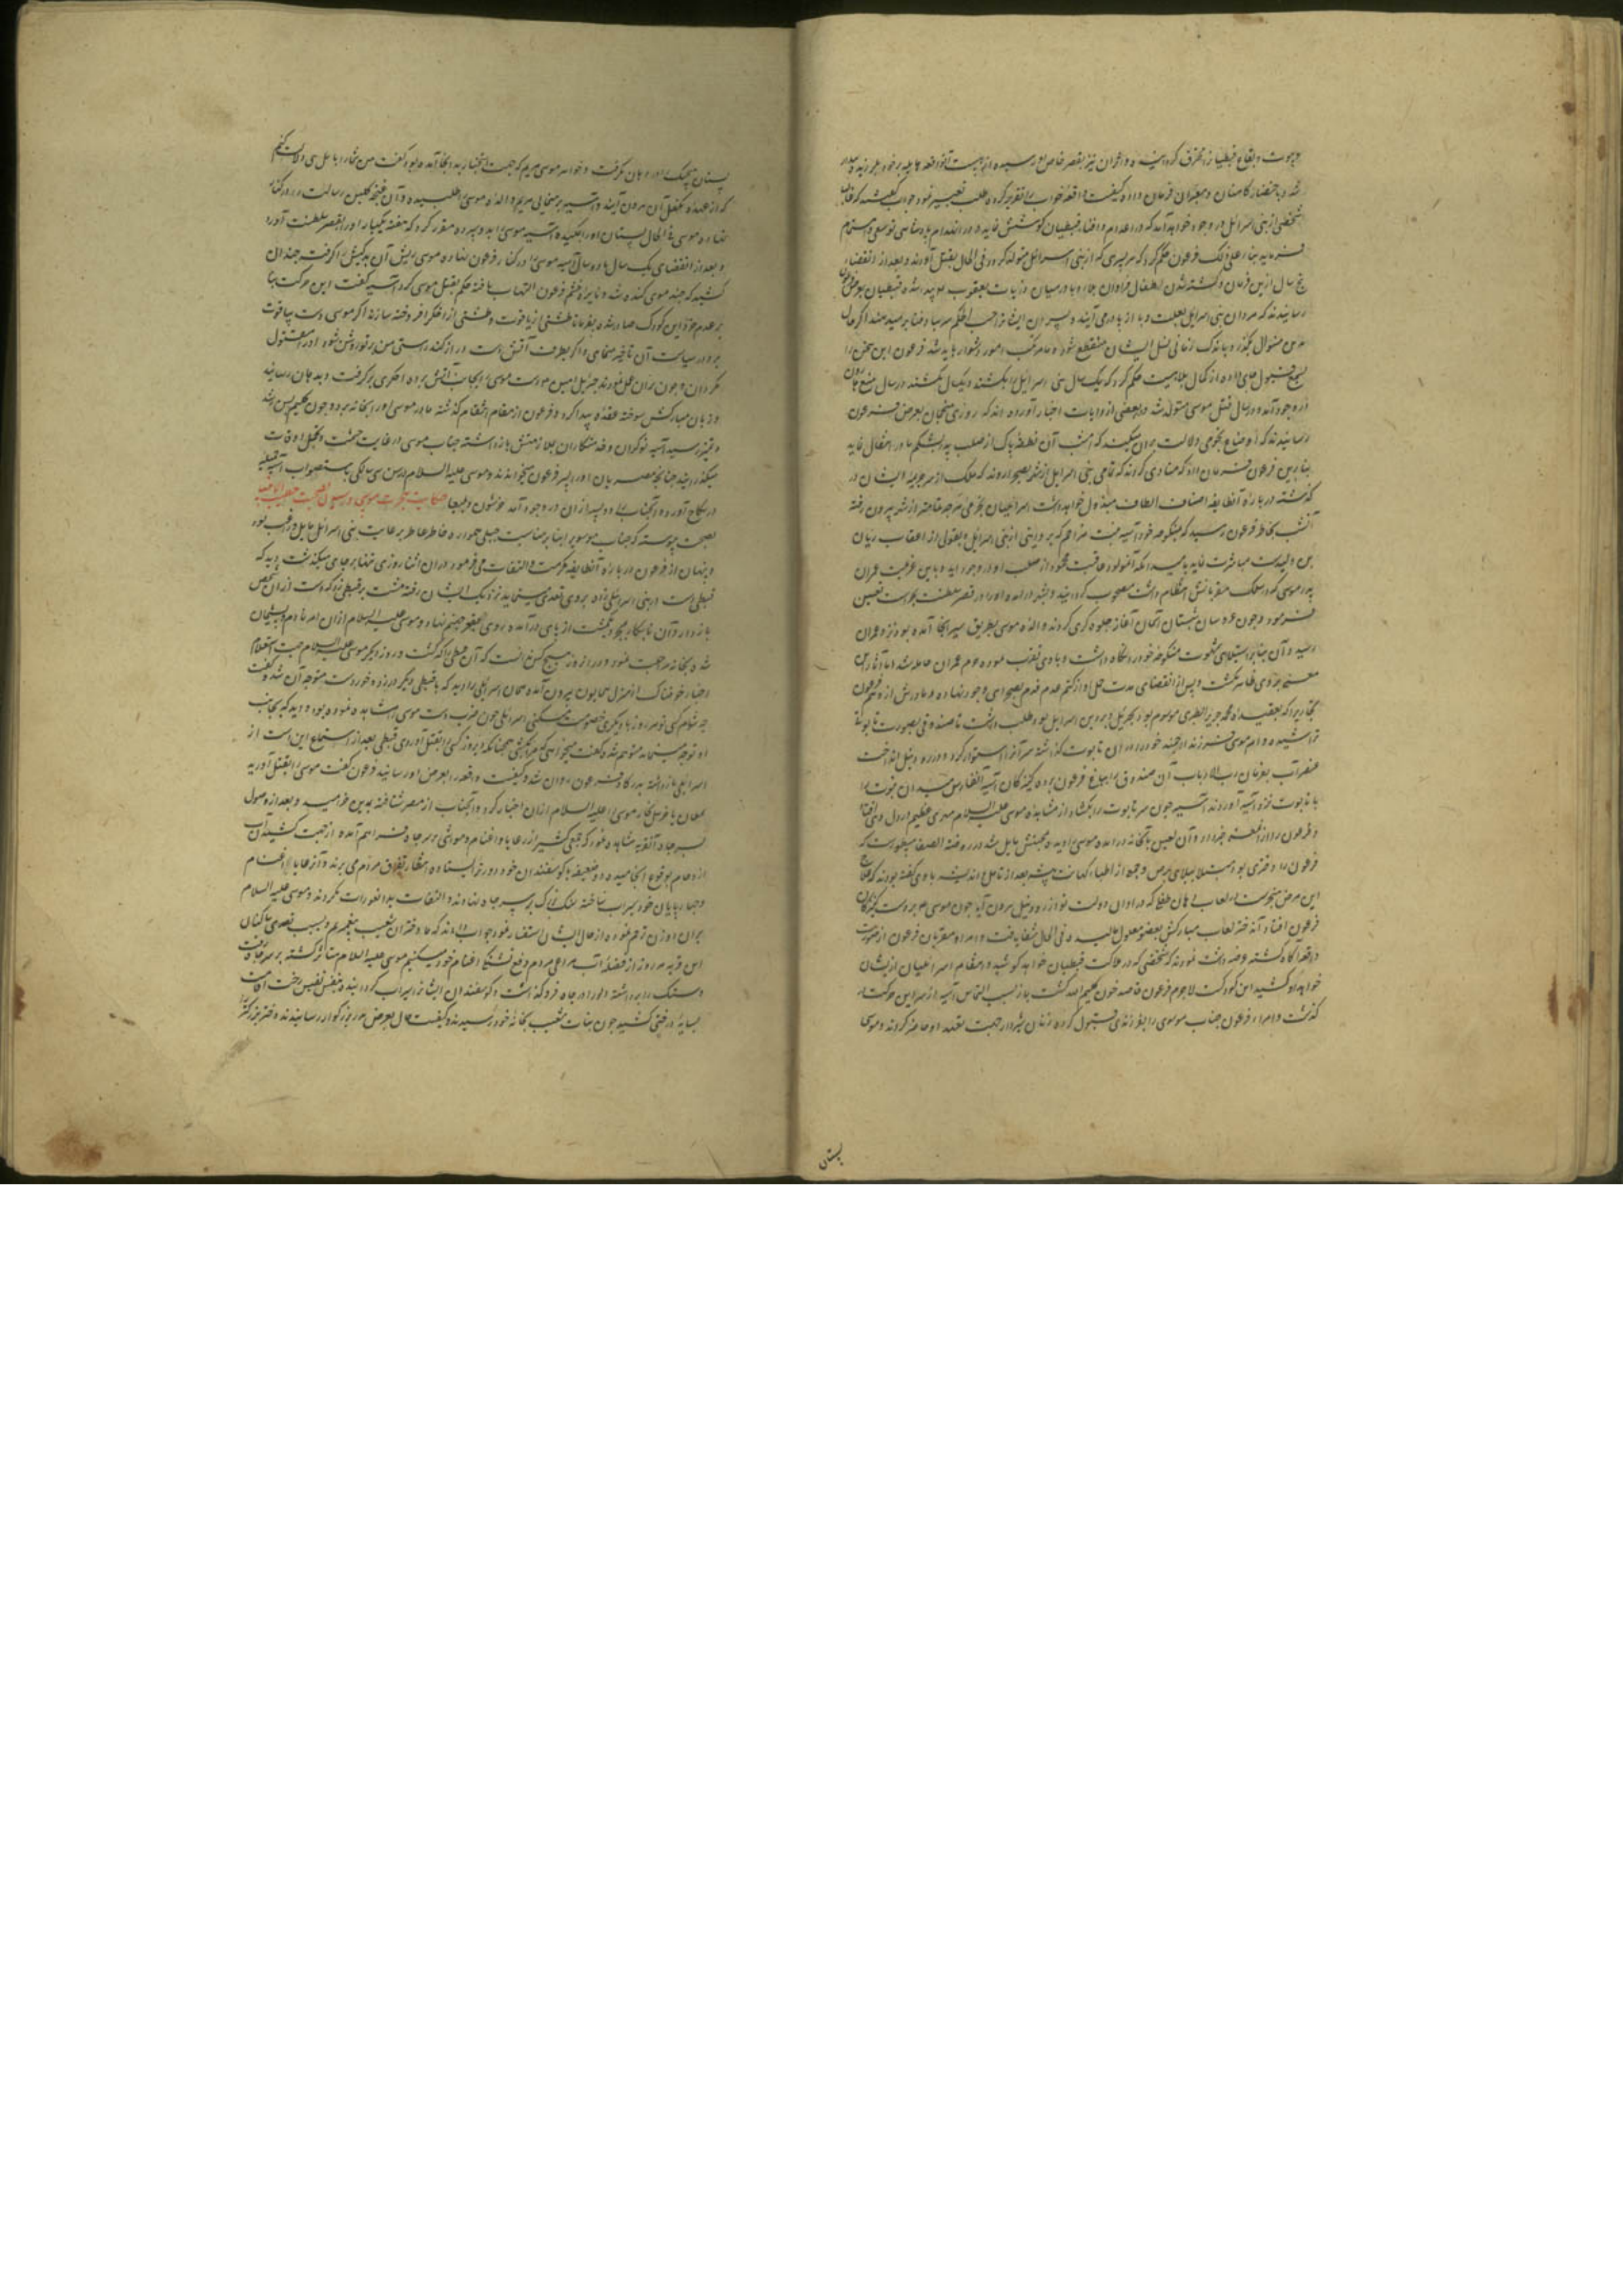 بیوت و بقاع قبطیان را محترق گردانیده و دخران نیز بقصر خاص او رسیده از هیبت آنواقعه هایله از خواب بیدار
شد و باحضار کاهنان و معبران فرمان داده کیفیت واقعه خواب را تقریر کرده طلب تعبیر نمود جواب گفتند که
شخصی از بنی اسرائیل در وجود خواهد آمد که در اعدام و افناء قبطیان کوشش نماید و در انهدام پادشاهی تو سعی و اهتمام
فرماید بناء علی ذلک فرعون حکم کرد که هر پسری که از بنی اسرائیل متولد گردد فی الحال بقتل آورند و بعد از انقضاء
پنج سال ازین فرمان و کشته شدن اطفال فراوان بلا و وبا در میان ذریات یعقوب پیدا شده قبطیان بعرض فرعون
رسانیدند که مردان بنی اسرائیل بعلت وبا از پا درمی آیند و پسران ایشان حسب الحکم شربت فنا میچشند اگر حال
برین منوال بگذرد باندک زمانی نسل ایشان منقطع شود و ما را مرتکب امور دشوار باید شد فرعون این سخن را
بسمع قبول جای داده از کمال بلاهیت حکم کرد که یک سال بنی اسرائیل را بکشند و یکسال نکشند و در سال منع هارون
در وجود آمد و در سال قتل موسی متولد شد و در بعضی از روایات اخبار آورده اند که روزی منجمان بعرض فرعون
رسانیدند که اوضاع نجومی دلالت بران میکند که امشب آن نطفه پاک از صلب پدر بشکم مادر انتقال نماید
بنابرین فرعون فرمان داد که منادی کردند که تمامی بنی اسرائیل از شهر بصحرا روند که ملک از سر جریمه ایشان در
گذشته درباره آنطایفه اصناف الطاف مبذول خواهد داشت اسرائیلیان بخرمی هر چه تمامتر از شهر بیرون رفته
آنشب بخاطر فرعون رسید که منکوحه خود آسیه بنت مزاحم که بروایتی از بنی اسرائیل و بقولی از اعقاب ریان
بن ولید است مباشرت نماید بامید آنکه آنمولود عاقبت محمود از صلب او در وجود آید و باین عزیمت عمران
پدر موسی که در سلک مقربانش انتظام داشت مصحوب گردانیده بشهر درآمد و او را در قصر سلطنت بحراست تعیین
فرمود و چون عروسان شبستان آسمان آغاز جلوه گری کردند والده موسی بطریق سیر آنجا آمده بود نزد عمران
رسید و آن جناب بنابر استیلای شهوت منکوحه خود را نگاه داشت و با وی تقرب نموده حرم عمران حامله شد اما آثار
حمل بروی ظاهر نگشت و پس از انقضای مدت حمل او از کتم عدم قدم بصحرای وجود نهاده و مادرش از وهم فرعون
نجاریرا که بعقیده محمد جریر الطبری موسوم بود بحزبیل و بر دین اسرائیل بود طلب داشت تا صندوقی بصورت تابوت
تراشیده و ام موسی فرزند ارجمند خود را در آن تابوت گذاشته سر آنرا استوار کرد و در رود نیل انداخت
عنصر آب بفرمان رب الارباب آن صندوق را بباغ فرعون برده کنیزکان آسیه آنغارا
با تابوت نزد آسیه آوردند آسیه چون سر تابوت را بگشاد از مشاهده موسی علیه السلام مهری عظیم در دل وی افتاد
و فرعون را از آنمعنی خبر داد و آن لعین بآنخانه درآمده موسی را دیده بمحبتش مایل شد و در روضة الصفا مسطور است که
فرعون را دختری بود مبتلا ببلای برص و جمعی از اطباء کهانت پیشه بعد از تامل و اندیشه با وی گفته بودند که علاج
این مرض منحصر است در لعاب دهان طفلی که در اوان دولت تو از رود نیل بیرون آید چون موسی بدست کنیزکان
فرعون افتاد آن دختر لعاب مبارکش بعضو معلول مالید و فی الحال شفا یافت و امراء و مقربان فرعون از صورت
واقعه آگاه گشته عرضه داشت نمودند که شخصی که در هلاکت قبطیان خواهد کوشید و در مقام اسرائیلیان از ایشان
خواهد کشید این کودک است لاجرم فرعون قاصد خون کلیم الله گشت باز بسبب التماس آسیه از سر این حرکت در
گذشت و امراء فرعون جناب موسوی را بفرزندی قبول کرده زنان شیردار جهت تعهد او حاضر کردند و موسی
پستان
پستان هیچیک را در دهان نگرفت و خواهر موسی مریم که جهت استخبار بدانجا آمده بود گفت من شما را باهل بیتی دلالت کنم
که از عهده تکفل آن بیرون آیند و آسیه برهنمایی مریم والده موسی را طلبیده و آن غنچه گلبن رسالت را در کنار
نهاده موسی فی الحال پستان او را مکیده آسیه موسی را بدو سپرده مقرر کرد که هفته یکبار او را بقصر سلطنت آورد
و بعد از انقضای یک سال یا دو سال آسیه موسی را در کنار فرعون نهاده موسی ریش آن بدکیش را گرفته چندان
کشید که چند موی کنده شد و نایره خشم فرعون التهاب یافته حکم بقتل موسی کرد آسیه گفت این حرکت بنا
بر عدم خرد ازین کودک صادر شده بفرما تا طشتی از یاقوت و طشتی از اخگر افروخته سازند اگر موسی دست بیاقوت
برد در سیاست آن تاخیر منمای و اگر بطرف آتش دست دراز کند راستی سخن من بر تو روشن شود او را مقتول
مگردان و چون بران عمل نمودند جبرئیل امین دست موسی را بجانب آتش برده اخگری برگرفت و بدهان رسانید
و زبان مبارکش سوخته عقده پیدا کرد و فرعون از مقام انتقام گذشته مادر موسی او را بخانه برد و چون کلیم بسن رشد
و تمیز رسید آسیه نوکران و خدمتکاران بملازمتش بازداشته جناب موسی در غایت حشمت و تجمل اوقات
میگذرانید چنانچه مصریان او را پسر فرعون میخواندند و موسی علیه السلام در سن سی سالگی باستصواب آسیه قبطیه
در نکاح آورد و آنجناب را دو پسر ازان در وجود آمد خرشون و بلیعا حکایت هجرت موسی و رسیدن بصحبت شعیب
بصحت پیوسته که جناب موسوی را بنا بر مناسبت جبلی همواره خاطر عاطر بر عایت بنی اسرائیل مایل و راغب بود
و پنهان از فرعون درباره آنطایفه مکرمت و التفات می فرمود دران اثنا روزی تنها بر جای میگذشت دید که
قبطی دست بر بنی اسرائیلی نهاد بروی تعدی مینماید نزدیک ایشان رفته مشت بر قبطی زد که دست ازان شخص
بازدارد و آن نابکار بیک مشت از پای درآمده روی بقعر جهنم نهاد و موسی علیه السلام ازان امر نادم و پشیمان
شد و بخانه مرجعت نمود و دران روز هیچکس ندانست که آن قبطی را که کشت و روز دیگر موسی علیه السلام جهت استعلام
اخبار خوفناک از منزل همایون بیرون آمد همان اسرائیلی را دید که با قبطی دیگر در زد و خورد است متوجه آن شد و گفت
چه شوم کسی تو هر روز با دیگری خصومت میکنی اسرائیلی چون ضرب دست موسی را مشاهده نموده بود و دید که بجانب
او توجه مینماید متوهم شد و گفت میخواهی که مرا بکشی چنانکه دیروز کسی را بقتل آوردی قبطی بعد از استماع این دست از
اسرائیلی بازداشته بدرگاه فرعون روان شد و کیفیت واقعه را بعرض او رسانید فرعون گفت موسی را بقتل آورید
همان مؤمن آل موسی را علیه السلام ازان اخبار کرد و آنجناب از مصر شتافته بمدین خرامید و بعد از وصول
بسر چاه آنقریه مشاهده نمود که جمعی کثیر از رعایا و اغنام و مواشی بر سر چاه فراهم آمده از جهت کشیدن آب
ازدحام بوقوع انجامیده و دو ضعیفه با گوسفندان خود دورتر ایستاده انتظار تفرق مردم می برند و آن رعایا اغنام
و چهارپایان خود سیراب ساخته سنگ بزرگ بر سر چاه نهادند و التفات بدان عورات نکردند و موسی علیه السلام
بران دو زن ترحم نموده از حال ایشان استفسار نمود جواب دادند که ما دختران شعیب پیغمبریم و بسبب
این قریه هر روز از فضله آب مراعی مردم دفع تشنگی اغنام خود میکنیم موسی علیه السلام متاثر گشته بر سر چاه رفت
و سنگ را برداشته دلو را در چاه فروگذاشت و گوسفندان ایشان را سیراب گردانیده بنفس نفیس رخت اقامت
بسایه درختی کشید چون بنات شعیب بخانه خود رسیدند و کیفیت حال بعرض پدر بزرگوار رسانیدند دختر بزرگتر